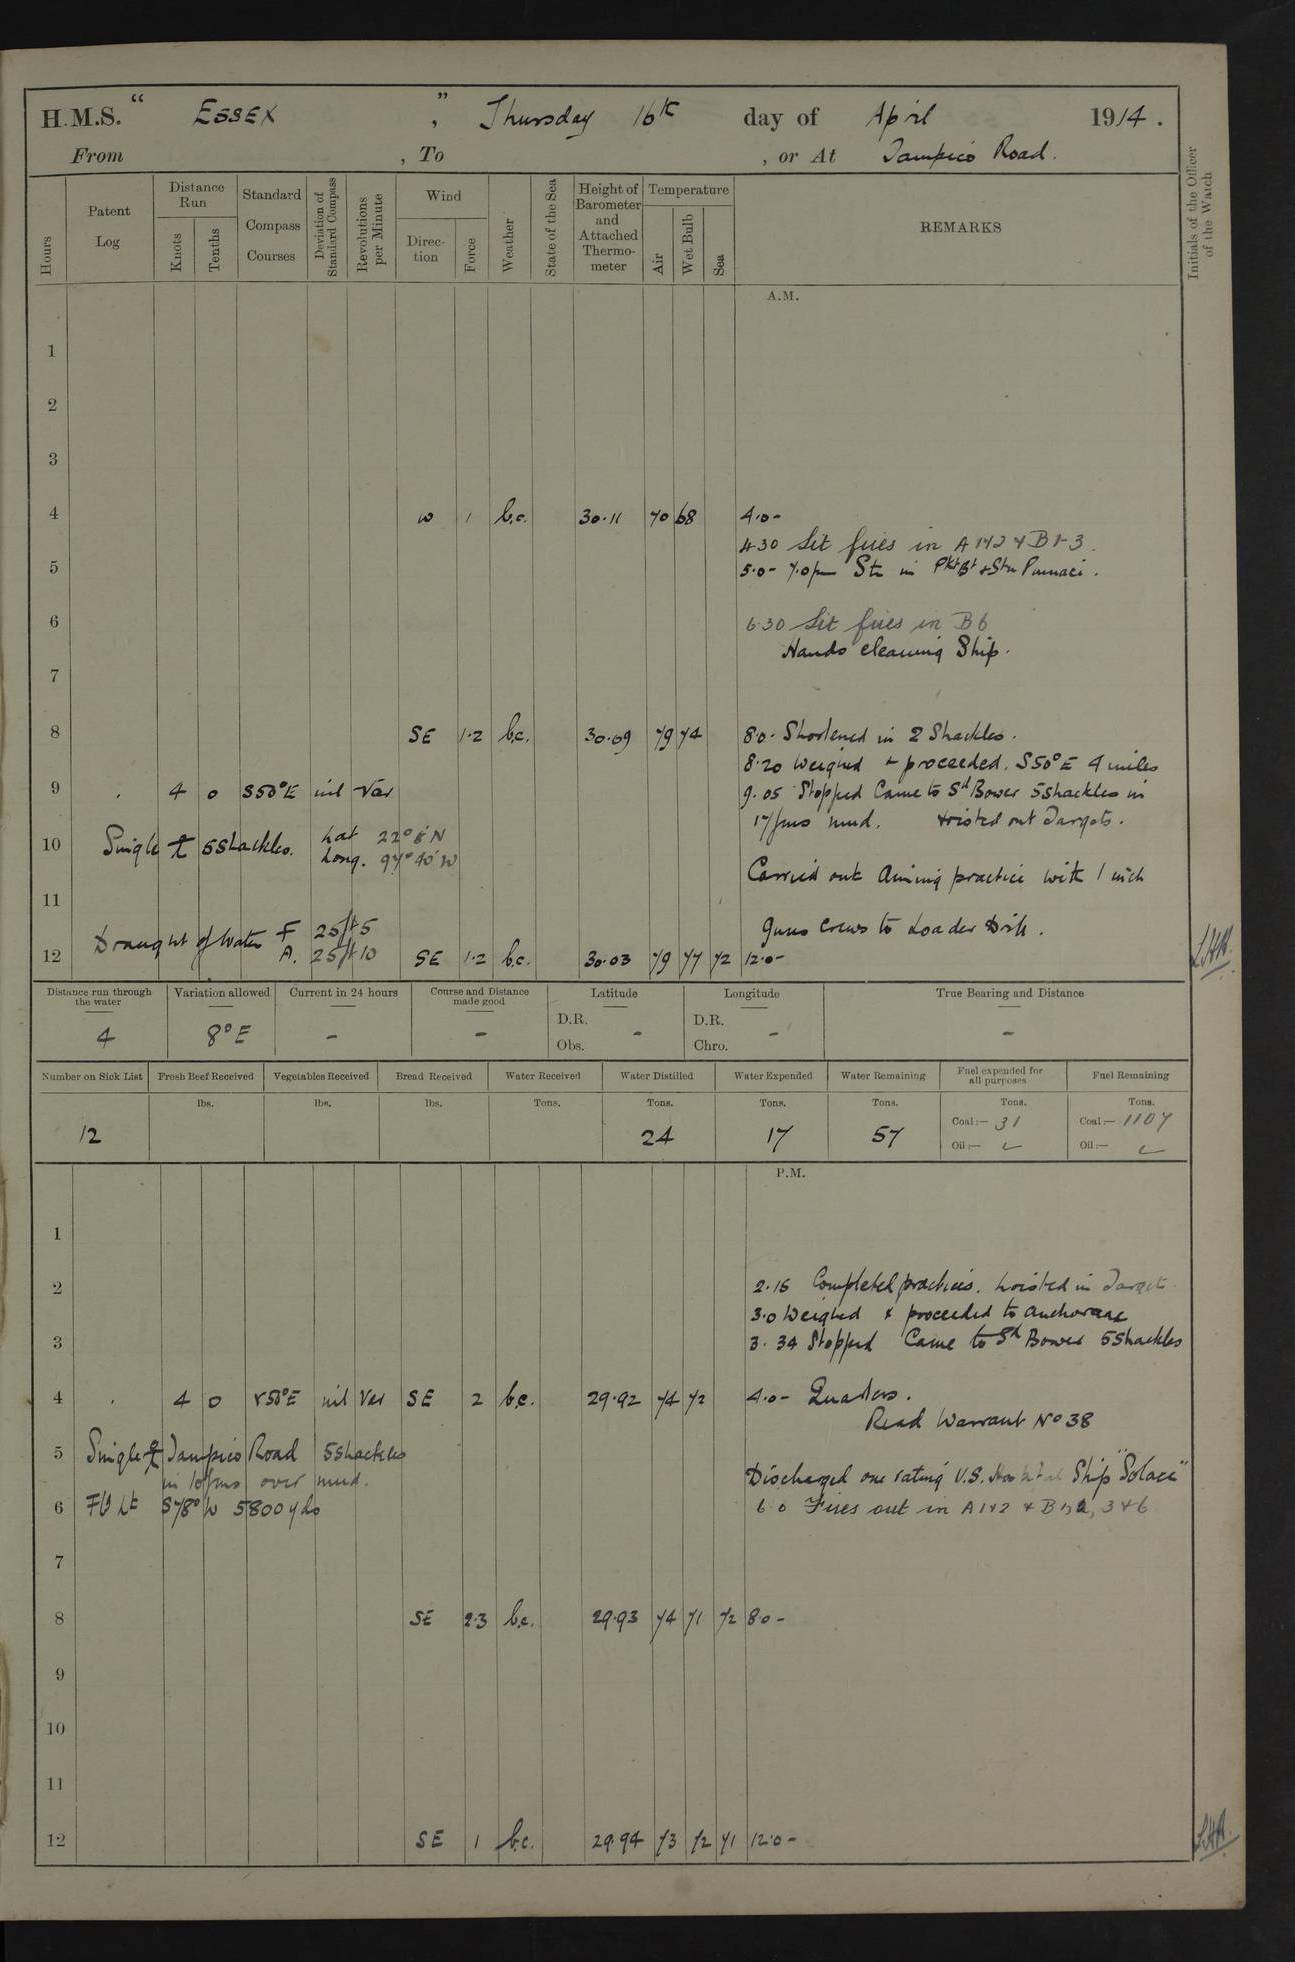 H.M.S. " ESSEX ", Thursday 16th day of April 1914.
From , To , or At Tampico Road.
Hours
Patent Log
Distance Run
Knots
Tenths
Standard Compass Courses
Deviation of Standard Compass
Revolutions per Minute
Wind
Direction
Force
Weather
State of the Sea
Height of Barometer and Attached Thermometer
Temperature
Air
Wet Bulb
Sea
REMARKS
Initials of the Officer of the Watch
A.M.
1
2
3
4 W 1 b.c. 30.11 70 68 4.0-
4.30 Lit fires in A 1&2 & B 1-3.
5 5.0- 7.0pm Stm in Pkt Bt & Stm Pinnace.
6 6.30 Lit fires in B6
Hands cleaning Ship.
7
8 SE 1.2 b.c. 30.09 79 74 8.0- Shortened in 2 Shackles.
8.20 Weighed & proceeded. S50°E 4 miles
9 4 0 S50°E nil Var 9.05 Stopped Came to Sd Bower 5 Shackles in
17 fms mud. Hoisted out Targets.
10 Single 5 Shackles. Lat 22° 8' N
Long. 97° 40' W
Carried out Aiming practice with 1 inch
11
Guns crews to Loader Drill.
Draught of Water F 25 ft 5
A. 25 ft 10
12 SE 1.2 b.c. 30.03 79 77 72 12.0-
Distance run through the water
4
Variation allowed
8°E
Current in 24 hours
-
Course and Distance made good
-
Latitude
D.R.
Obs.
-
Longitude
D.R.
Chro.
-
True Bearing and Distance
-
Number on Sick List
12
Fresh Beef Received
lbs.
Vegetables Received
lbs.
Bread Received
lbs.
Water Received
Tons.
Water Distilled
Tons.
24
Water Expended
Tons.
17
Water Remaining
Tons.
57
Fuel expended for all purposes
Tons.
Coal:— 31
Oil:—
Fuel Remaining
Tons.
Coal:— 1107
Oil:—
P.M.
1
2 2.15 Completed practices. hoisted in Targets
3.0 Weighed & proceeded to anchorage
3 3.34 Stopped Came to Sd Bower 5 Shackles
4 4 0 S50°E nil Var SE 2 b.c. 29.92 74 72 4.0- Quarters.
Read Warrant No 38
5 Single Tampico Road 5 Shackles
in 10 fms over mud.
Discharged one rating U.S. Hospital Ship "Solace"
6 S78°W 5800 yds 6.0 Fires out in A 1&2 & B 1, 2, 3 & 6
7
8 SE 2.3 b.c. 29.93 74 71 72 8.0-
9
10
11
12 SE 1 b.c. 29.94 73 72 71 12.0-